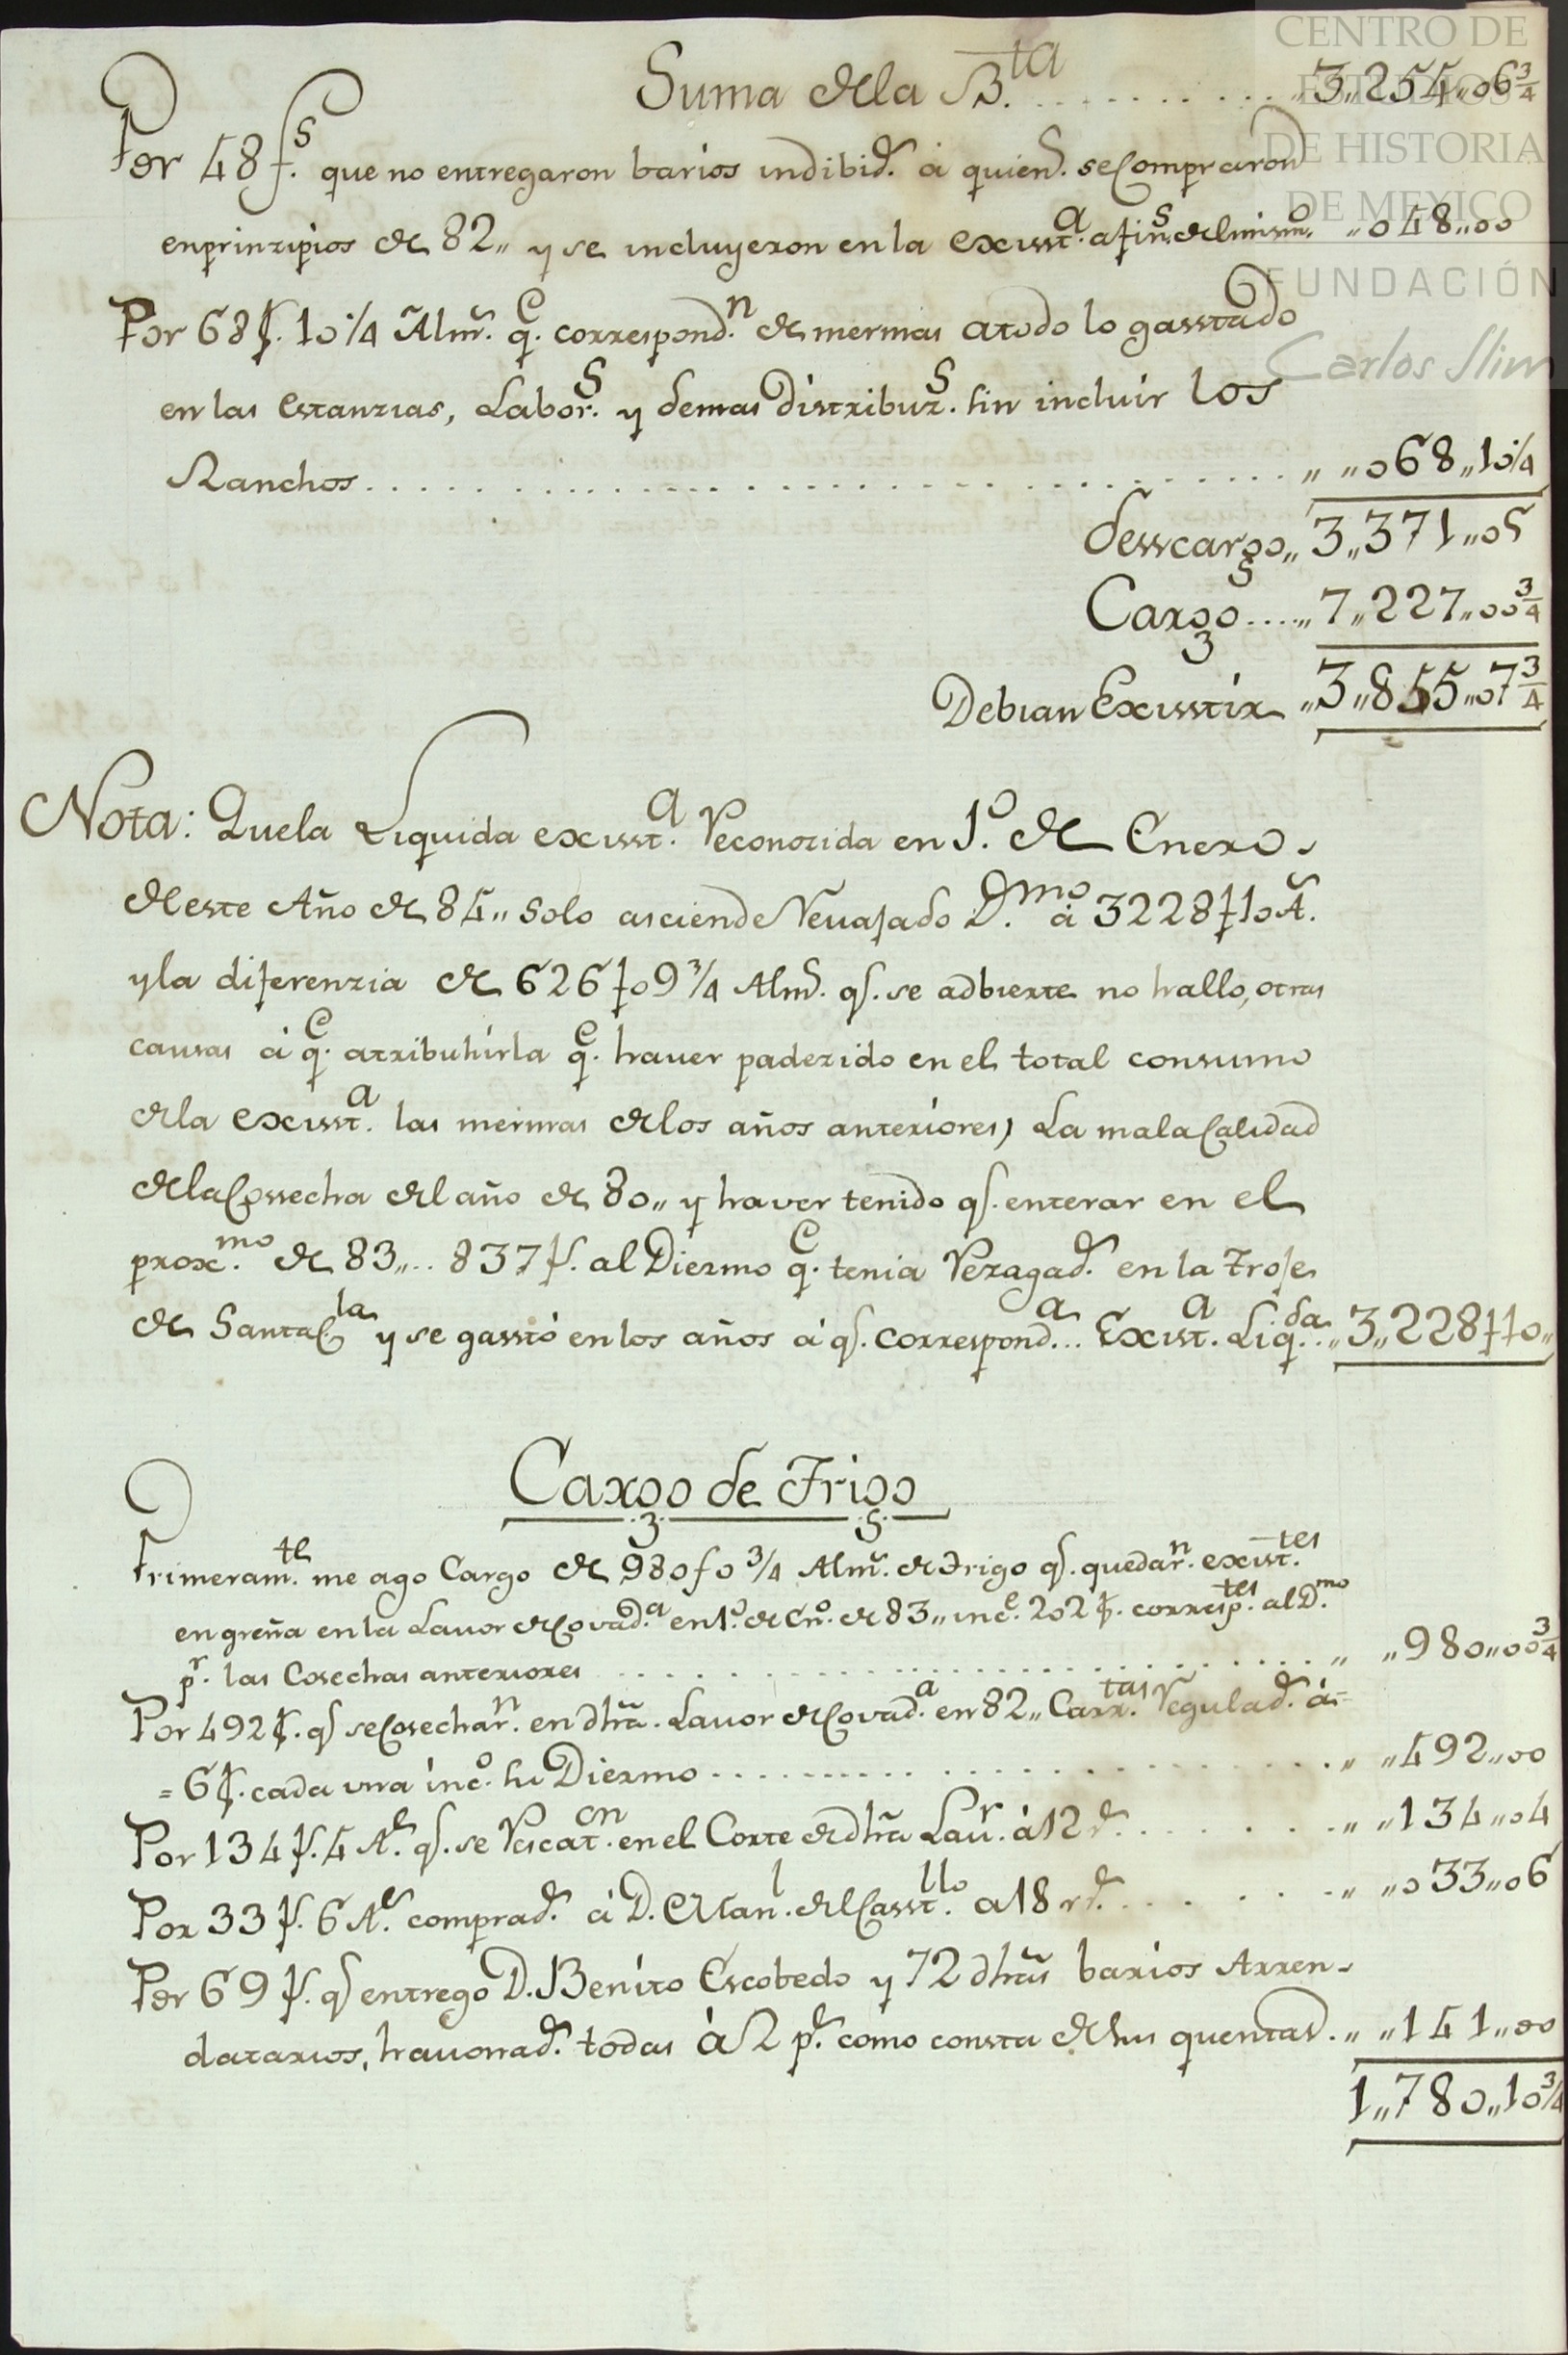 CENTRO DE
ESTUDIOS
DE HISTORIA
DE MEXICO
FUNDACIÓN
Carlos Slim
Suma de la B.ta ........... „3„254„06 3/4
Por 48 f.s que no entregaron barios indibid.s á quien.s se Compraron
en prinzipios de 82„ y se incluyeron en la exisst.a a fin.s del mismo. „048„00
Por 68 f. 10 1/4 Alm.s q.e correspond.n de mermas a todo lo gasstado
en las Estanzias, Labor.s y demas distribuz.s sin incluir los
Ranchos ........... „ „068„10 1/4
desscargo„ 3„371„05
Cargo....„ 7„227„00 3/4
Debian Exisstir „3„855„07 3/4
Nota: Que la Liquida exisst.a Reconozida en 1.o de Enero
de este Año de 84„ solo asciende Revajado D.mo á 3228 f 10 A.s
y la diferenzia de 626 f 09 3/4 Alm.s q.e se adbierte no hallo, otras
causas á q.e atribuhirla q.e haver padezido en el total consumo
de la exisst.a las mermas de los años anteriores, La mala Calidad
de la Cossecha del año de 80„ y haver tenido q.e enterar en el
prox.mo de 83„.. 837 f. al Diezmo q.e tenia Rezagad.s en la Troje
de Santa C.la y se gasstó en los años á q.e correspond.a... Exist.a Liq.da..„3„228 f 10„
Cargo de Trigo
Primeram.te me ago Cargo de 980 f 0 3/4 Alm.s de Trigo q.e quedar.n existt.tes
en greña en la Lavor de Covad.a en 1.o de En.o de 83„ inc.e 202 f. corresp.tes al D.mo
p.r las Cosechas anteriores ........... „ „980„00 3/4
Por 492 f. q.e se Cosechar.n en dhã. Lavor de Covad.a en 82„ Carr.tas Regulad.s á=
=6 f. cada una inc.o su Diezmo ........... „ „492„00
Por 134 f. 4 A.s q.e se Rescat.on en el Corte de dhã Lav.r á 12 r.s ....... „ „134„04
Por 33 f. 6 A.s comprad.s á D. Man.l del Casst.llo a 18 r.s ....... „ „033„06
Por 69 f. q.e entrego D. Benito Escobedo y 72 dhãs barios Arren-
datarios, havonad.s todas á 2 p.s como consta de sus quentas. „ „141„00
1„780„10 3/4